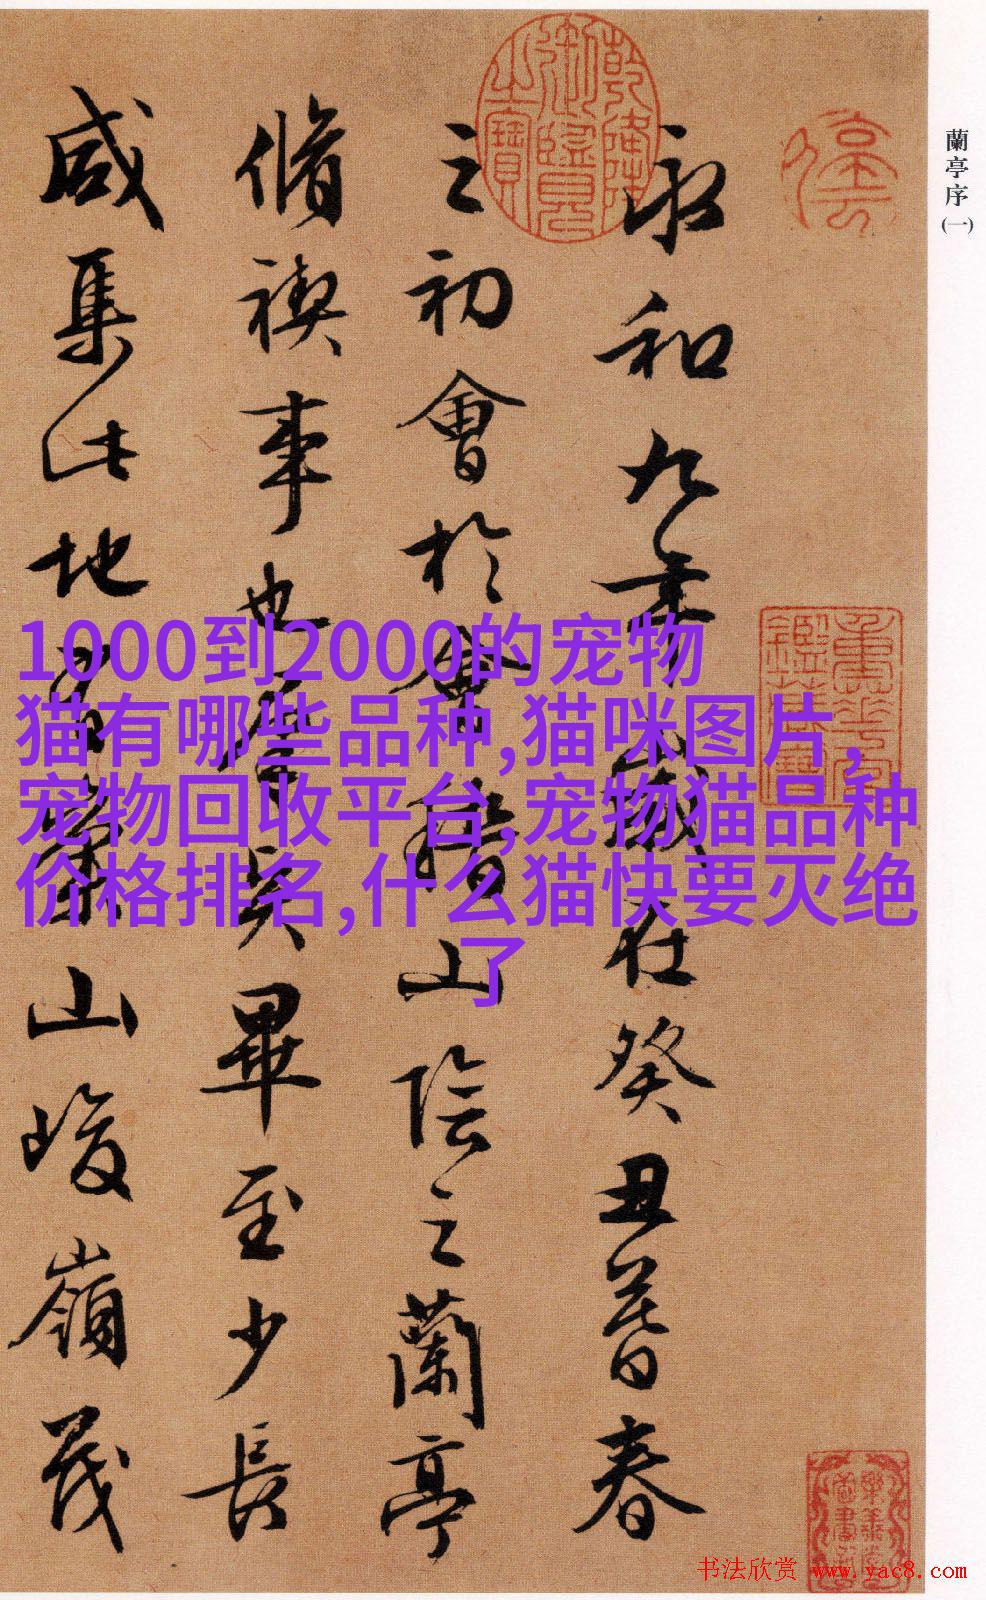 蘭亭序(一)
永和九年歲在癸丑暮春
之初會於會稽山陰之蘭亭
脩禊事也羣賢畢至少長
咸集此地有崇山峻嶺茂
乾隆御覽之寶
重華宮鑑藏寶
1000到2000的宠物
猫有哪些品种,猫咪图片,
宠物回收平台,宠物猫品种
价格排名,什么猫快要灭绝
了
书法欣赏 www.yac8.com